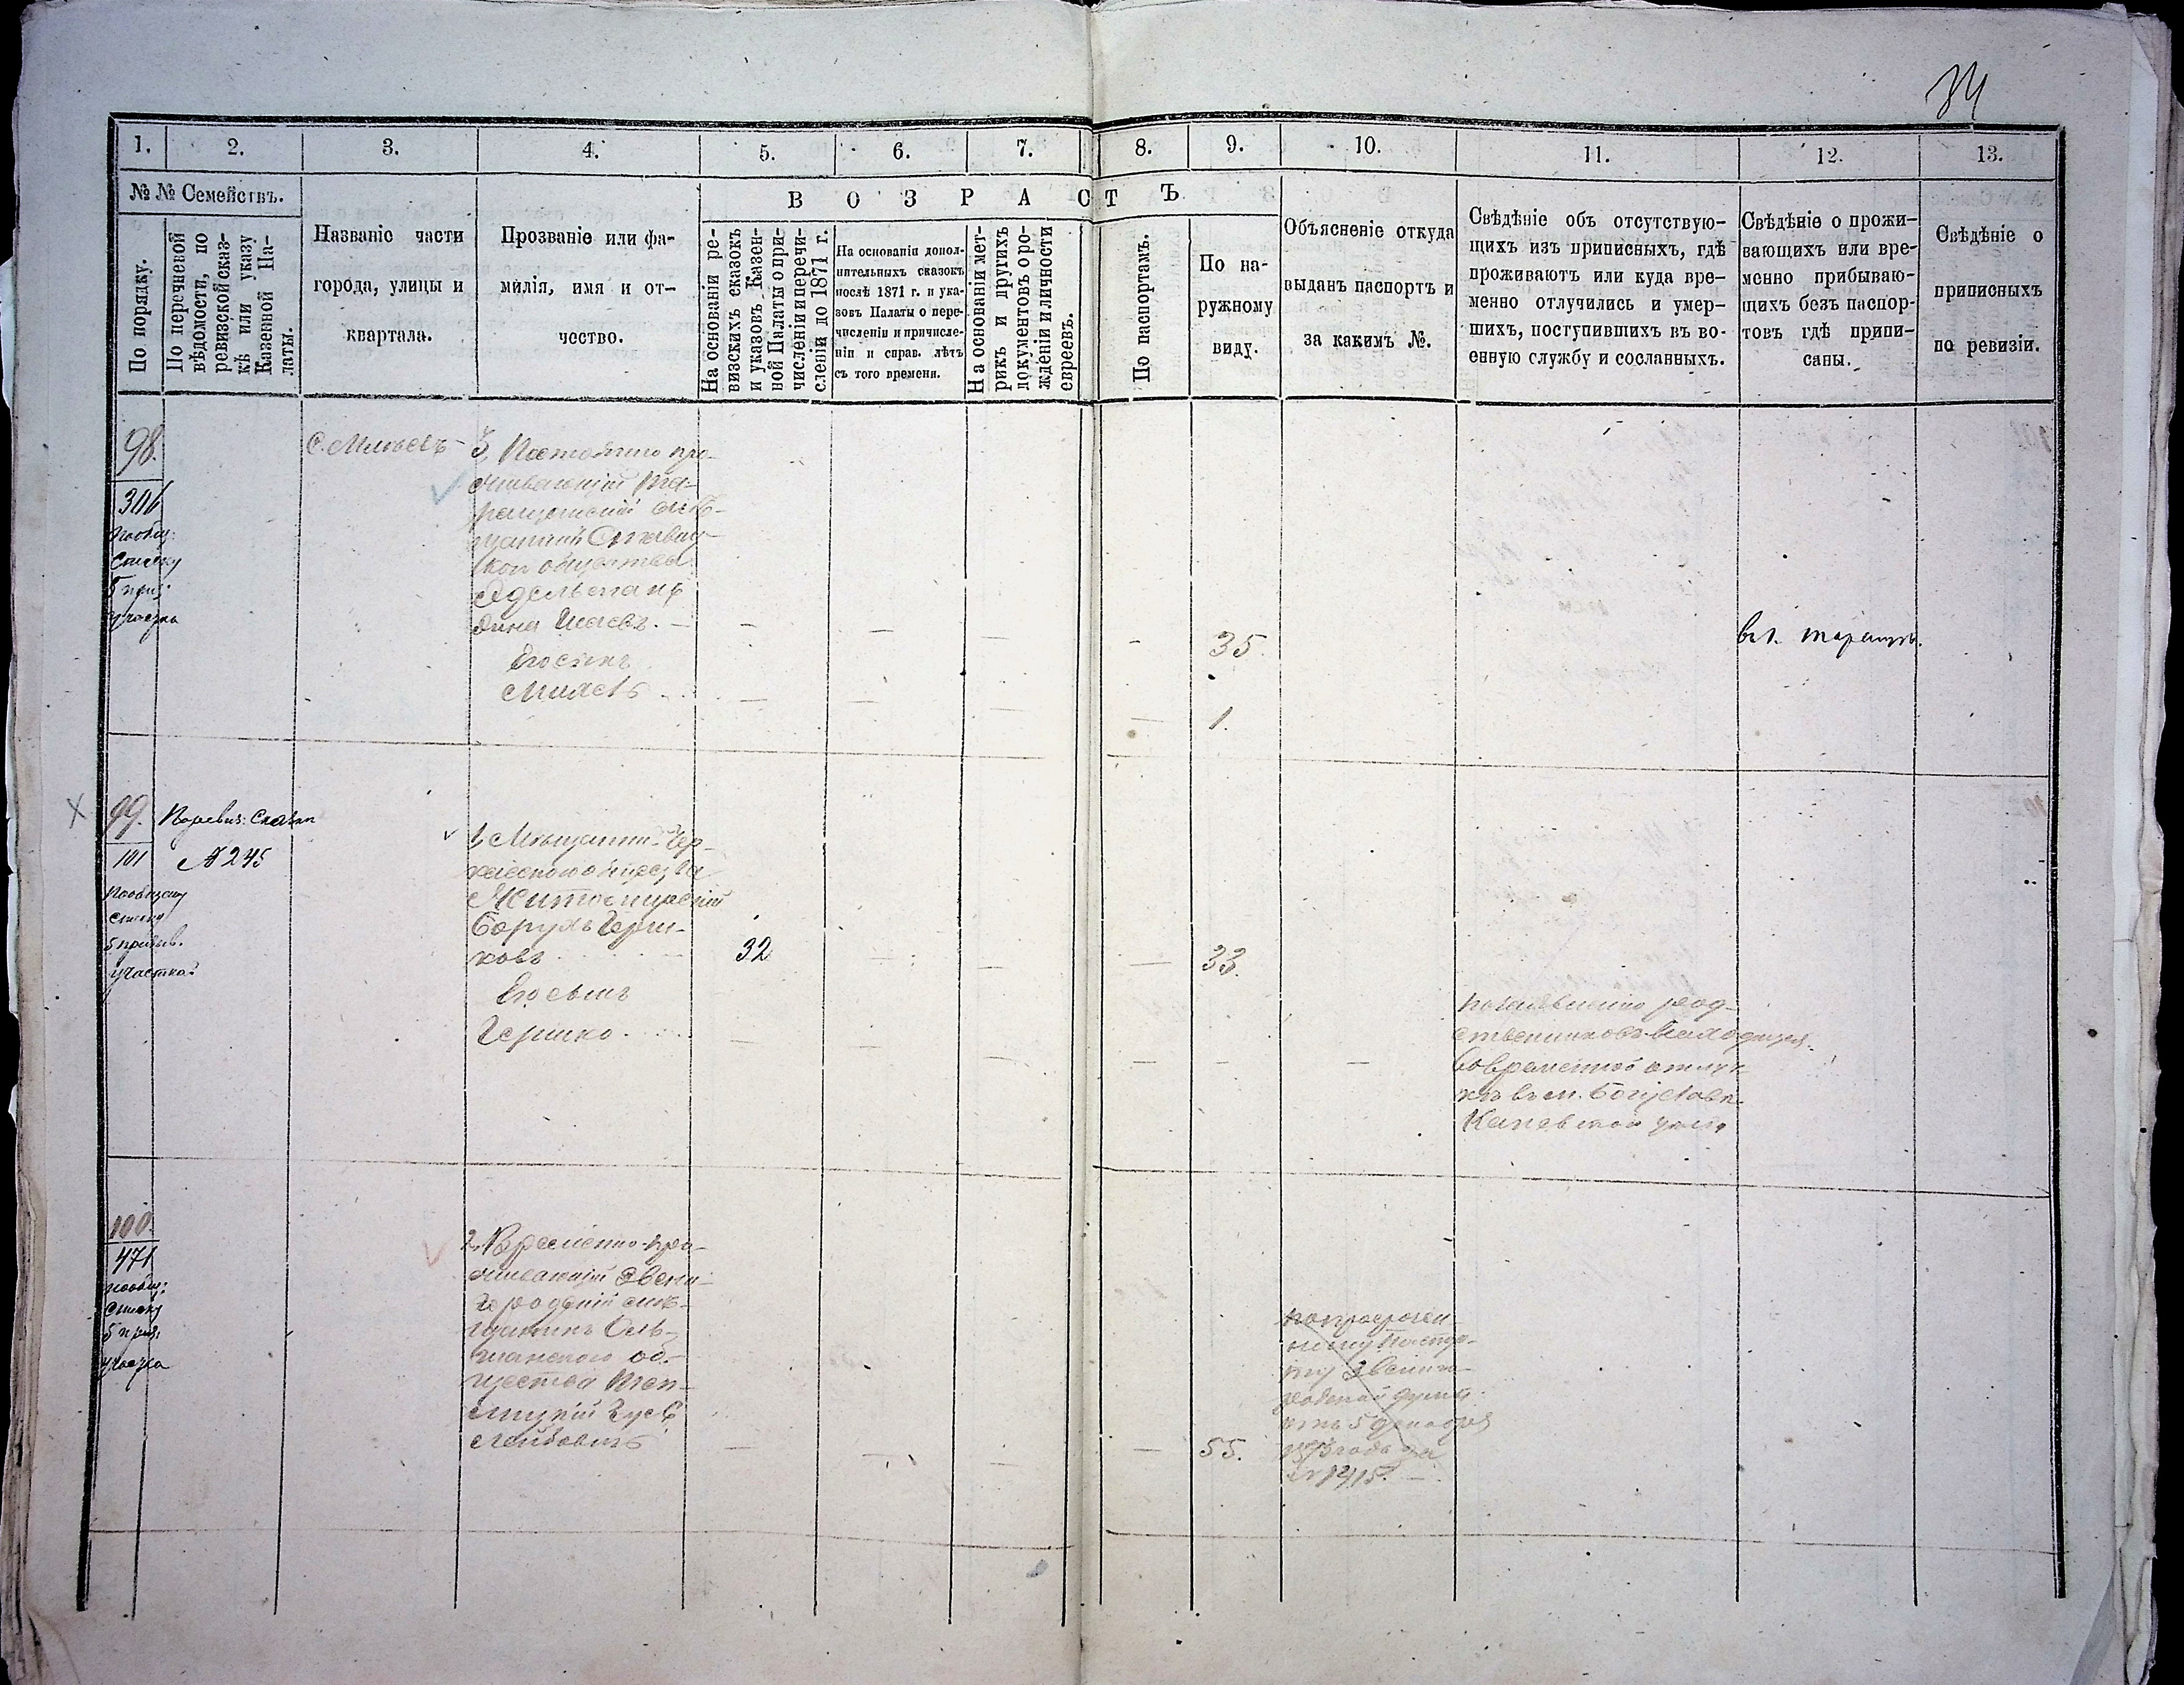 84
1.
2.
3.
4.
5.
6.
7.
8.
9.
10.
11.
12.
13.
№ № Семействъ.
По порядку.
По перечневой
вѣдомости, по
ревизской сказ-
кѣ или указу
Казенной Па-
латы.
Названіе части
города, улицы и
квартала.
Прозваніе или фа-
милія, имя и от-
чество.
ВОЗРАСТЪ
На основаніи ре-
визскихъ сказокъ
и указовъ Казен-
ной Палаты о при-
численіи и перечи-
сленіи до 1871 г.
На основаніи допол-
нительныхъ сказокъ
послѣ 1871 г. и ука-
зовъ Палаты о пере-
численіи и причисле-
ніи и справ. лѣтъ
съ того времени.
На основаніи мет-
рикъ и другихъ
документовъ о ро-
жденіи и личности
евреевъ.
По паспортамъ.
По на-
ружному
виду.
Объясненіе откуда
выданъ паспортъ и
за какимъ №.
Свѣдѣніе объ отсутствую-
щихъ изъ приписныхъ, гдѣ
проживаютъ или куда вре-
менно отлучились и умер-
шихъ, поступившихъ въ во-
енную службу и сосланныхъ.
Свѣдѣніе о прожи-
вающихъ или вре-
менно прибываю-
щихъ безъ паспор-
товъ гдѣ припи-
саны.
Свѣдѣніе о
приписныхъ
по ревизіи.
98.
306
пообщ:
списку
5 приз:
участка
С. Млiевъ
3, Постоянно про-
живающій Та-
ращанскій мѣ-
щанинъ
кои общества
Эдельштанъ
Дина Исаевъ. —
Его сынъ
35.
1.
въ г. Таращѣ.
99.
101
Пообщему
списку
5 призыв.
участка
По ревиз: Сказкѣ
№ 245
1, Мѣщанинъ Чер-
касскаго общества
Житомирскій
Борухъ Герш-
ковъ
32
33.
Его сынъ
Гершко
по заявленію род-
ственниковъ находится
во временной отлуч-
кѣ въ м. Богуславѣ
Каневскаго уѣзда
100.
471
пообщ:
списку
5 приз:
участка
2, Временно-про-
живающій Звени-
городскій мѣ-
щанинъ Оль-
шанского об-
щества Теп-
лицкій Зусь
Лейбовичъ
55.
по просрочен-
ному паспор-
ту Звениго-
родской думы
отъ 5 декабря
1873 года за
№ 1415. —